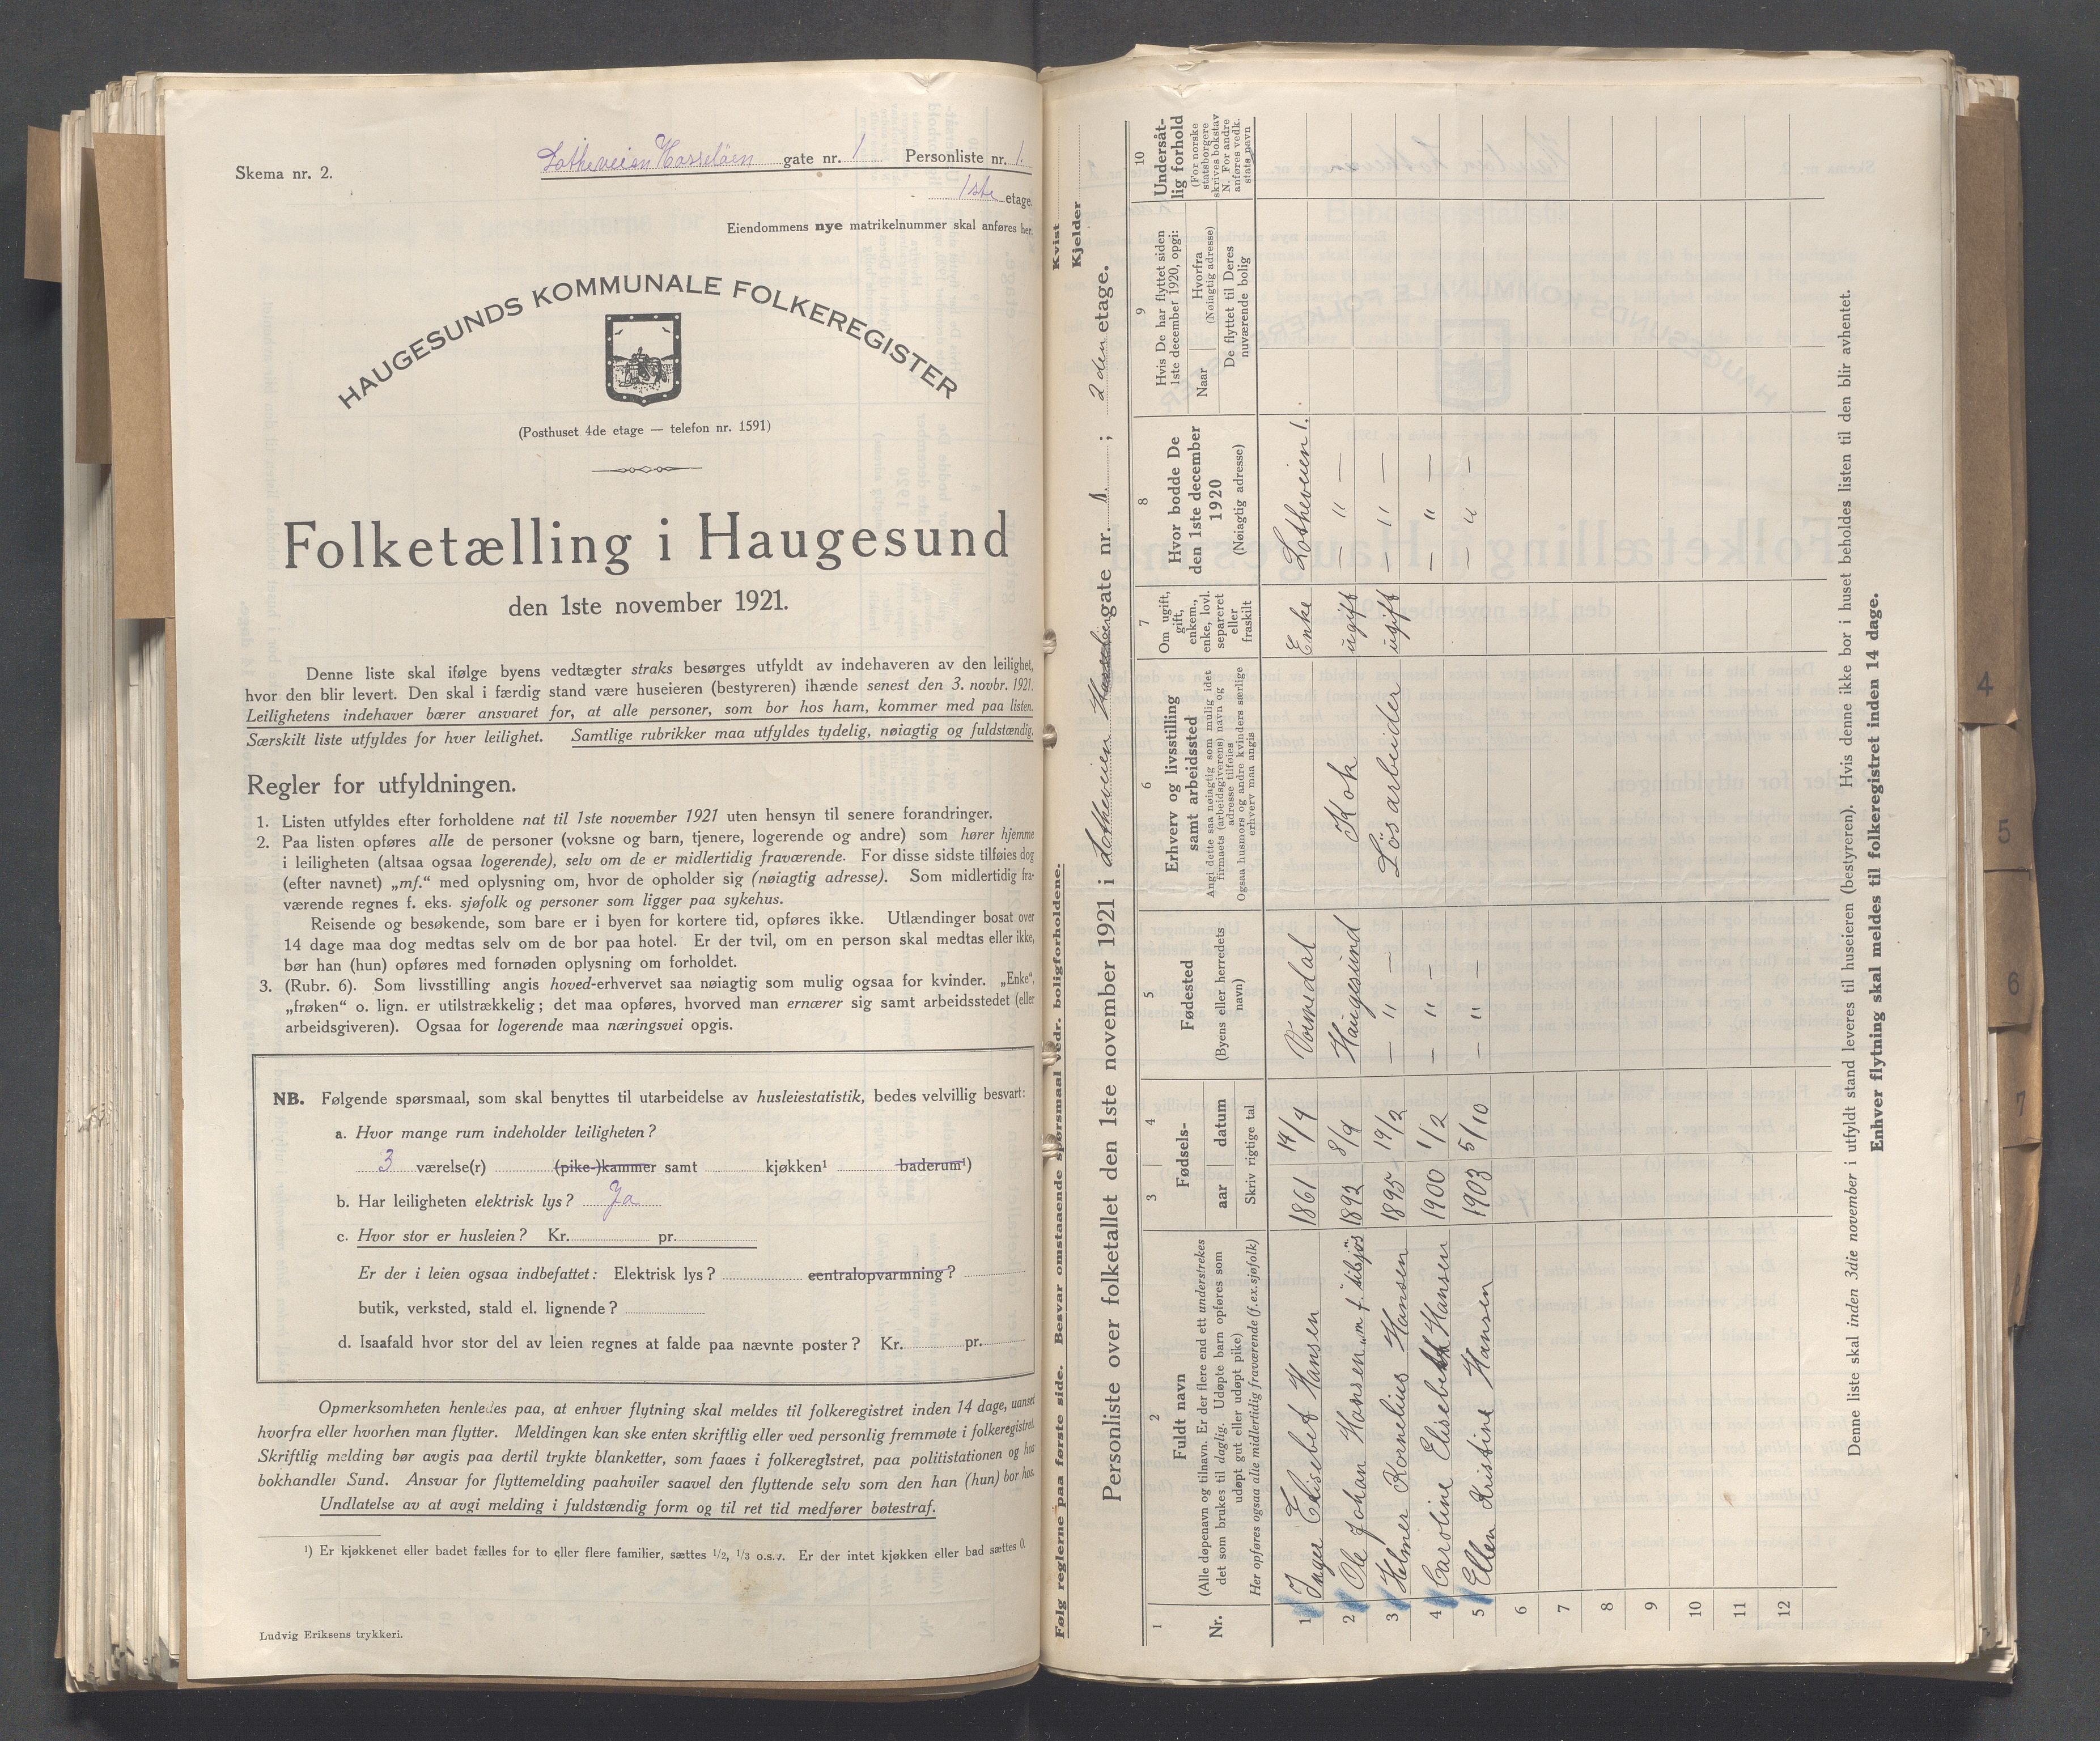 Skema nr. 2.
Lotheveien Hasseløen gate nr. 1 Personliste nr. 1.
1ste etage.
Eiendommens nye matrikelnummer skal anføres her.
HAUGESUNDS KOMMUNALE FOLKEREGISTER
(Posthuset 4de etage — telefon nr. 1591)
Folketælling i Haugesund
den 1ste november 1921.
Denne liste skal ifølge byens vedtægter straks besørges utfyldt av indehaveren av den leilighet,
hvor den blir levert. Den skal i færdig stand være huseieren (bestyreren) ihænde senest den 3. novbr. 1921.
Leilighetens indehaver bærer ansvaret for, at alle personer, som bor hos ham, kommer med paa listen.
Særskilt liste utfyldes for hver leilighet. Samtlige rubrikker maa utfyldes tydelig, nøiagtig og fuldstændig.
Regler for utfyldningen.
1. Listen utfyldes efter forholdene nat til 1ste november 1921 uten hensyn til senere forandringer.
2. Paa listen opføres alle de personer (voksne og barn, tjenere, logerende og andre) som hører hjemme
i leiligheten (altsaa ogsaa logerende), selv om de er midlertidig fraværende. For disse sidste tilføies dog
(efter navnet) „mf.“ med oplysning om, hvor de opholder sig (nøiagtig adresse). Som midlertidig fra-
værende regnes f. eks. sjøfolk og personer som ligger paa sykehus.
Reisende og besøkende, som bare er i byen for kortere tid, opføres ikke. Utlændinger bosat over
14 dage maa dog medtas selv om de bor paa hotel. Er der tvil, om en person skal medtas eller ikke,
bør han (hun) opføres med fornøden oplysning om forholdet.
3. (Rubr. 6). Som livsstilling angis hoved-erhvervet saa nøiagtig som mulig ogsaa for kvinder. „Enke“,
„frøken“ o. lign. er utilstrækkelig; det maa opføres, hvorved man ernærer sig samt arbeidsstedet (eller
arbeidsgiveren). Ogsaa for logerende maa næringsvei opgis.
NB. Følgende spørsmaal, som skal benyttes til utarbeidelse av husleiestatistik, bedes velvillig besvart:
a. Hvor mange rum indeholder leiligheten?
3 værelse(r) (pike-)kammer samt kjøkken¹ baderum¹)
b. Har leiligheten elektrisk lys? Ja
c. Hvor stor er husleien? Kr. pr.
Er der i leien ogsaa indbefattet: Elektrisk lys? centralopvarmning?
butik, verksted, stald el. lignende?
d. Isaafald hvor stor del av leien regnes at falde paa nævnte poster? Kr. pr.
Opmerksomheten henledes paa, at enhver flytning skal meldes til folkeregistret inden 14 dage, uanset
hvorfra eller hvorhen man flytter. Meldingen kan ske enten skriftlig eller ved personlig fremmøte i folkeregistret.
Skriftlig melding bør avgis paa dertil trykte blanketter, som faaes i folkeregistret, paa politistationen og hos
bokhandler Sund. Ansvar for flyttemelding paahviler saavel den flyttende selv som den han (hun) bor hos.
Undlatelse av at avgi melding i fuldstændig form og til ret tid medfører bøtestraf.
¹) Er kjøkkenet eller badet fælles for to eller flere familier, sættes 1/2, 1/3 o.s.v. Er der intet kjøkken eller bad sættes 0.
Ludvig Eriksens trykkeri.
Følg reglerne paa første side. Besvar omstaaende spørsmaal vedr. boligforholdene.
Kvist
Kjelder
Personliste over folketallet den 1ste november 1921 i Lotheveien gate nr. 1. ; 2den etage.
1 2 3 4 5 6 7 8 9 10
Nr.
Fuldt navn
(Alle døpenavn og tilnavn. Er der flere end ett understrekes
det som brukes til daglig. Udøpte barn opføres som
udøpt gut eller udøpt pike)
Her opføres ogsaa alle midlertidig fraværende (f.ex.sjøfolk)
Fødsels-
aar datum
Skriv rigtige tal
Fødested
(Byens eller herredets
navn)
Erhverv og livsstilling
samt arbeidssted
Angi dette saa nøiagtig som mulig idet
firmaets (arbeidsgiverens) navn og
adresse tilføies
Ogsaa husmors og andre kvinders særlige
erhverv maa angis
Om ugift,
gift,
enkem.,
enke, lovl.
separeret
eller
fraskilt
Hvor bodde De
den 1ste december
1920
(Nøiagtig adresse)
Hvis De har flyttet siden
1ste december 1920, opgi:
Naar
Hvorfra
(Nøiagtig adresse)
De flyttet til Deres
nuværende bolig
Undersåt-
lig forhold
(For norske
statsborgere
skrives bokstav
N. For andre
anføres vedk.
stats navn
1 Inger Elisebet Hansen 1861 14/9 Vormedal Enke Lotheveien 1.
2 Ole Johan Hansen „m f. tilsjøs“ 1892 8/9 Haugesund Kok ugift — „ —
3 Helmer Kornelius Hansen 1895 19/2 — „ — Lösarbeider ugift — „ —
4 Caroline Elisebeth Hansen 1900 1/2 — „ — — „ —
5 Ellen Kristine Hansen 1903 5/10 — „ — — „ —
6
7
8
9
10
11
12
Denne liste skal inden 3die november i utfyldt stand leveres til huseieren (bestyreren). Hvis denne ikke bor i huset beholdes listen til den blir avhentet.
Enhver flytning skal meldes til folkeregistret inden 14 dage.
4
5
6
7